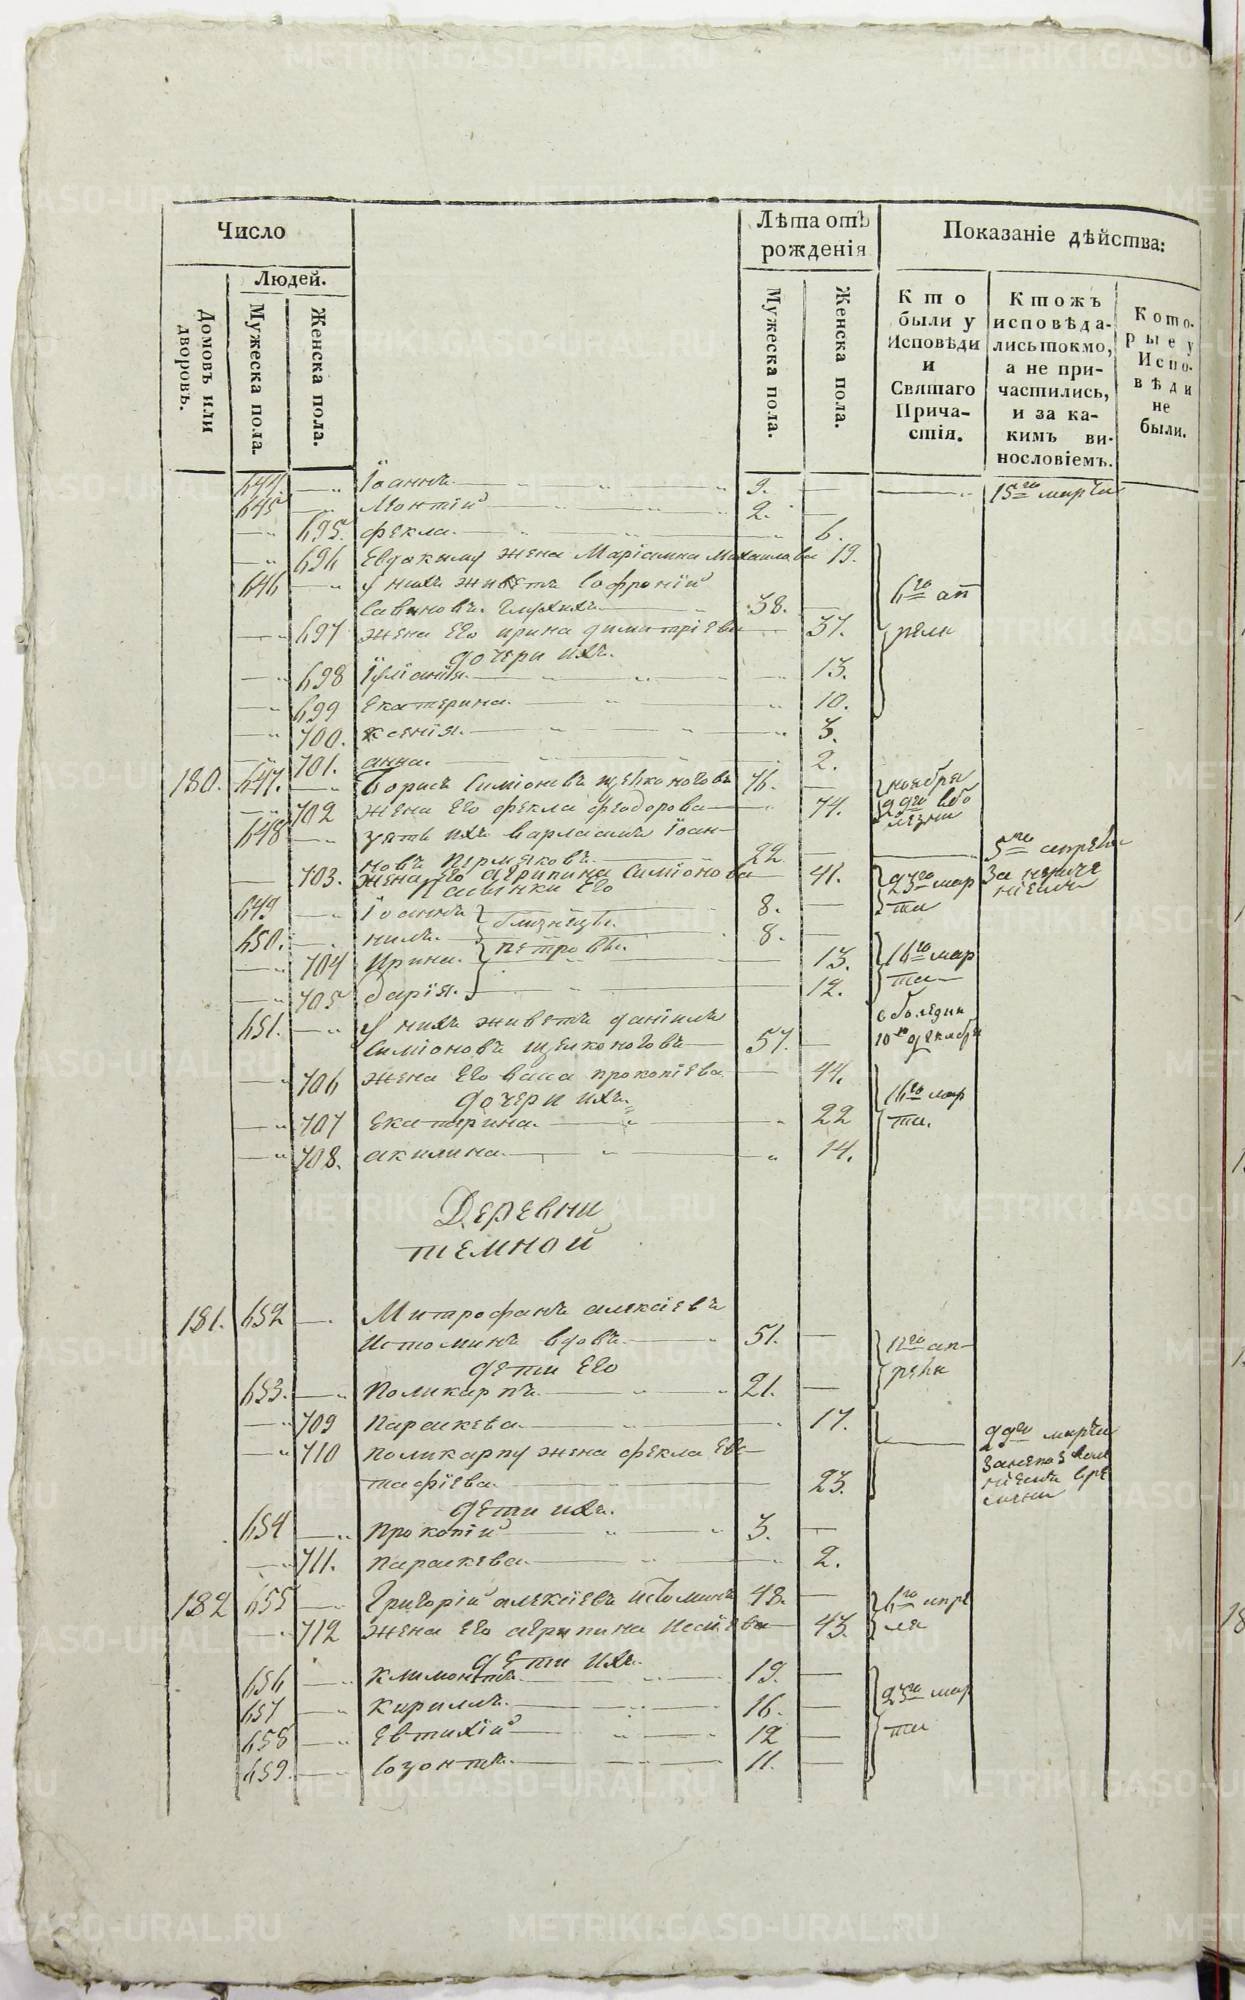 Число
Людей.
Домовъ или дворовъ.
Мужеска пола.
Женска пола.
Лѣта отъ рожденія
Мужеска пола.
Женска пола.
Показаніе дѣйства:
Кто были у Исповѣди и Святаго Причастія.
Ктожъ исповѣдались токмо, а не причастились, и за какимъ винословіемъ.
Которые у Исповѣди не были.
644. Іоаннъ 9. 15го марта
645 Леонтій 2.
695. Фекла 6.
696 Евдокиму жена Маріамна Михаилова 19.
646 У нихъ живетъ Софроній
Савиновъ Глухихъ 38. 6го ап
697 жена его ирина димитріева 37. реля
дочери ихъ.
698 Іуліанія 13.
699 екатерина 10.
700. ксенія. 3.
701. анна. 2.
180. 647. Борисъ Симіоновъ щелконоговъ 76. ноября
702 жена его фекла феодорова 74. 9го в бо
648 зять ихъ варлаамъ іоан- лезни
новъ пермяковъ 22 5го апреля
703. жена его агрипина Симіонова 41. 25го мар за
Пасынки его
649 Іоаннъ близнецы 8. та
650. нилъ. петровы. 8.
704 Ирина. 13. 16го мар
705 дарія. 12. та
651. У нихъ живетъ даніилъ в болезни
Симіоновъ щелконоговъ 57. 10го декабря
706 жена его васа прокопіева 44.
дочери ихъ. 16го мар
707 екатерина. 22 та.
708. акилина 14.
Деревни
темной
181. 652 Митрофанъ алексіевъ
Истоминъ вдовъ. 51. 12го ап-
дети его реля
653. Поликарпъ 21.
709 параскева. 17.
710 поликарпу жена фекла евс- 9го марта
тафіева. 23.
дети ихъ.
654 прокопій 3.
711. параскева. 2.
182 655 Григорій алексіевъ истоминъ 48. 6го апре
712 жена его агрипина 43. ля
дети ихъ.
656 климонтъ 19.
657 кирилъ. 16. 25го мар
658 евтихій 12 та
659. созонтъ. 11.
METRIKI.GASO-URAL.RU